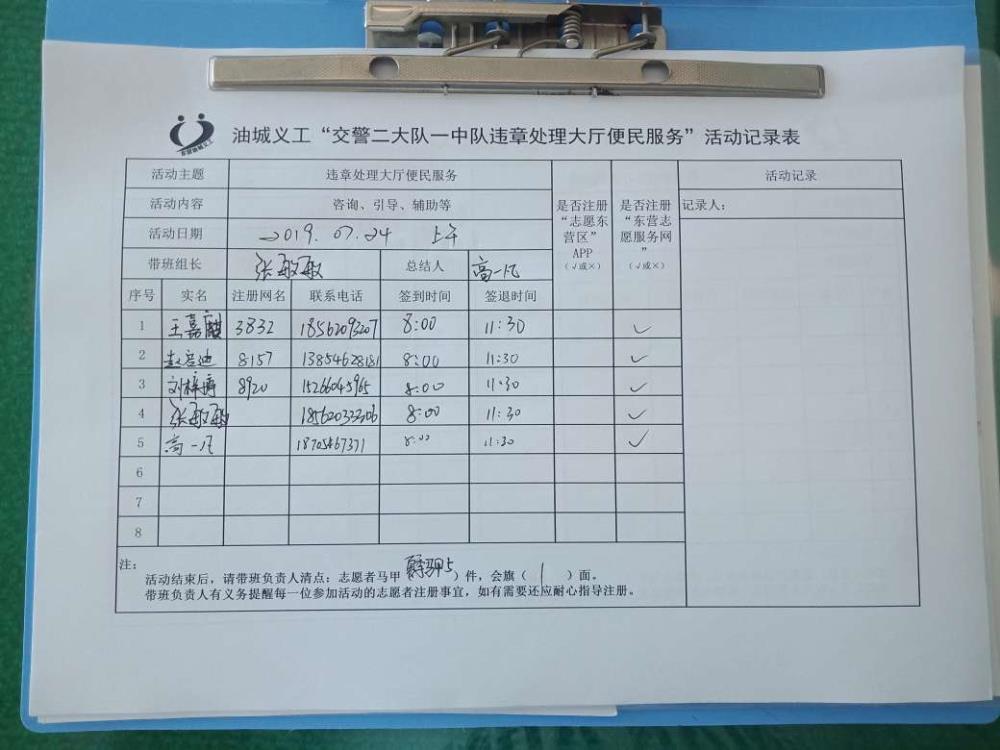 油城义工“交警二大队一中队违章处理大厅便民服务”活动记录表
活动主题 违章处理大厅便民服务 是否注册“志愿东营区”APP（√或×） 是否注册“东营志愿服务网”（√或×） 活动记录
活动内容 咨询、引导、辅助等 记录人：
活动日期 2019.07.24 上午
带班组长 张敏敏 总结人 高一凡
序号 实名 注册网名 联系电话 签到时间 签退时间
1 王嘉麒 3832 18562093207 8:00 11:30 ✓
2 赵启迪 8157 13854628181 8:00 11:30 ✓
3 刘梓涛 8920 15266045965 8:00 11:30 ✓
4 张敏敏 18562033306 8:00 11:30 ✓
5 高一凡 18705467371 8:00 11:30 ✓
6
7
8
注：
活动结束后，请带班负责人清点：志愿者马甲 5 ）件，会旗（ 1 ）面。
带班负责人有义务提醒每一位参加活动的志愿者注册事宜，如有需要还应耐心指导注册。